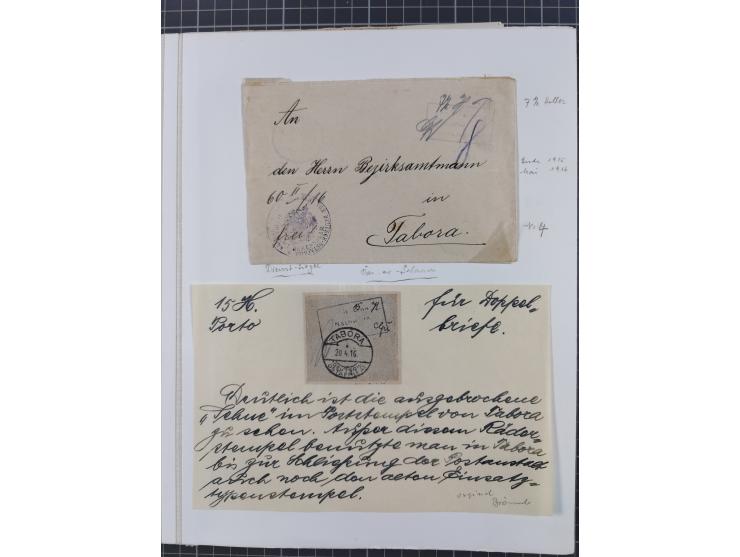 An
den Herrn Bezirksamtmann
in
60 II/16
frei
Tabora.
7½ Heller
Ende 1915
Mai 1916
Nr. 4
Dienst-Siegel
15 H.
Porto
für Doppel-
briefe.
TABORA
20.4.16.
Deutlich ist die ausgebrochene
"Sehne" im Poststempel von Tabora
zu sehen. Außer diesem Räder-
stempel benutzte man in Tabora
bis zur Schließung der Postanstalt
auch noch den alten Einsatz-
typenstempel.